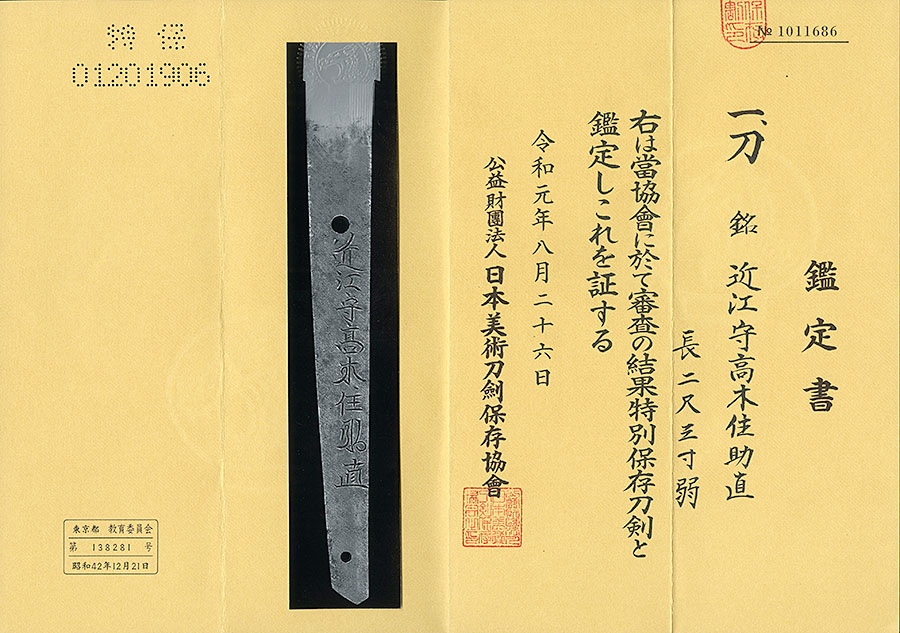 № 1011686
鑑定書
一、刀 銘 近江守高木住助直
長二尺三寸弱
右は當協會に於て審査の結果特別保存刀剣と
鑑定しこれを証する
令和元年八月二十六日
公益財團法人日本美術刀劍保存協會
近江守高木住助直
特保
01201906
東京都 教育委員会
第 138281 号
昭和42年12月21日